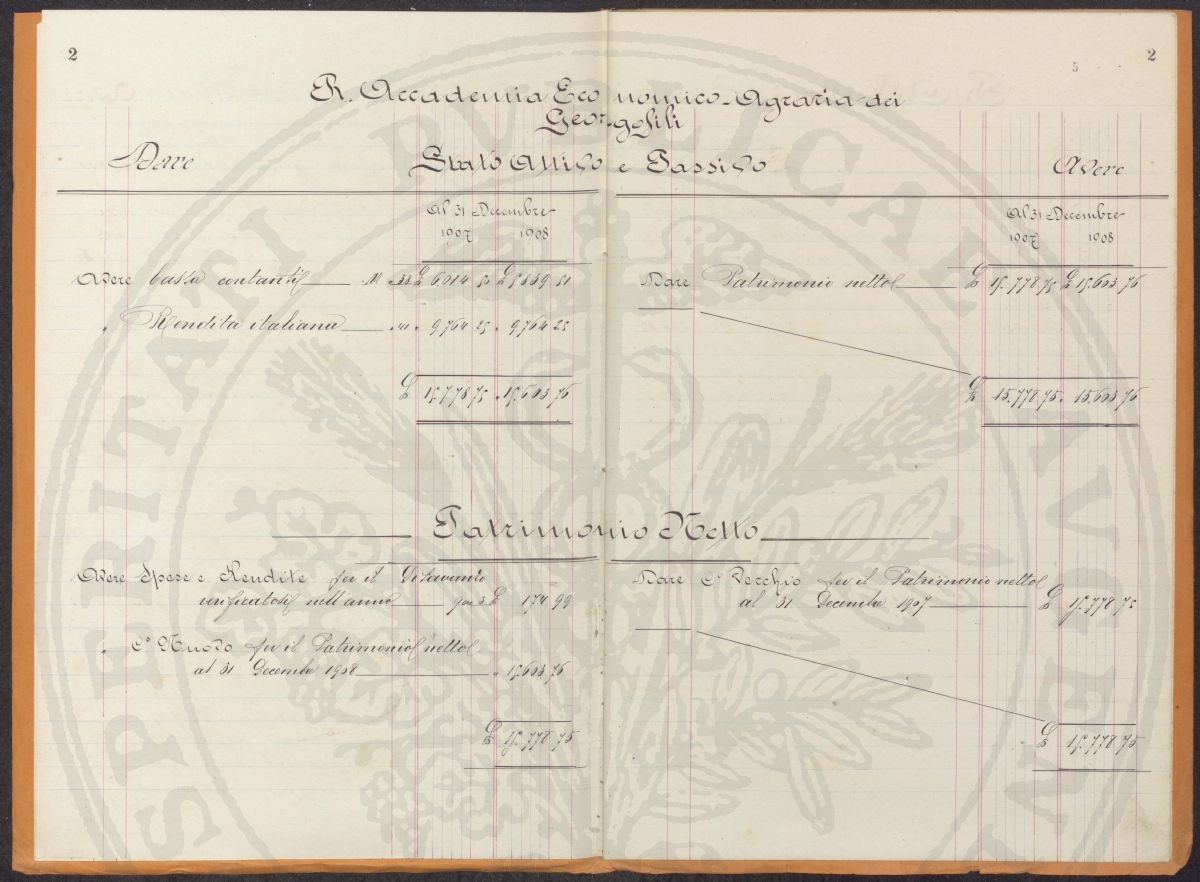 2
2
5
R. Accademia Economico-Agraria dei
Georgofili
Dare Stato Attivo e Passivo Avere
Al 31 Decembre
1907 1908
Al 31 Decembre
1907 1908
Avere Cassa contanti £ 6,014 50 £ 5,839 51
" Rendita italiana " 9,764 25 " 9,764 25
£ 15.778 75 " 15.603 76
Dare Patrimonio netto £ 15.778 75 £ 15.603 76
£ 15.778 75 " 15.603 76
Patrimonio Netto
Avere Spese e Rendite per il Disavanzo
verificatosi nell'anno £ 174 99
" Cº Nuovo per il Patrimonio netto
al 31 Decembre 1908 " 15.603 76
£ 15.778 75
Dare Cº Vecchio per il Patrimonio netto
al 31 Decembre 1907 £ 15.778 75
£ 15.778 75
SPERITATI PUBLICAE AUGEN